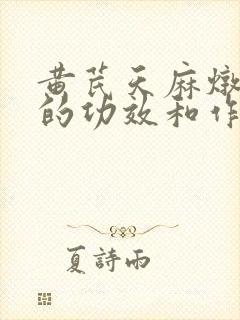 黄芪天麻燉
的功效和作
夏詩雨